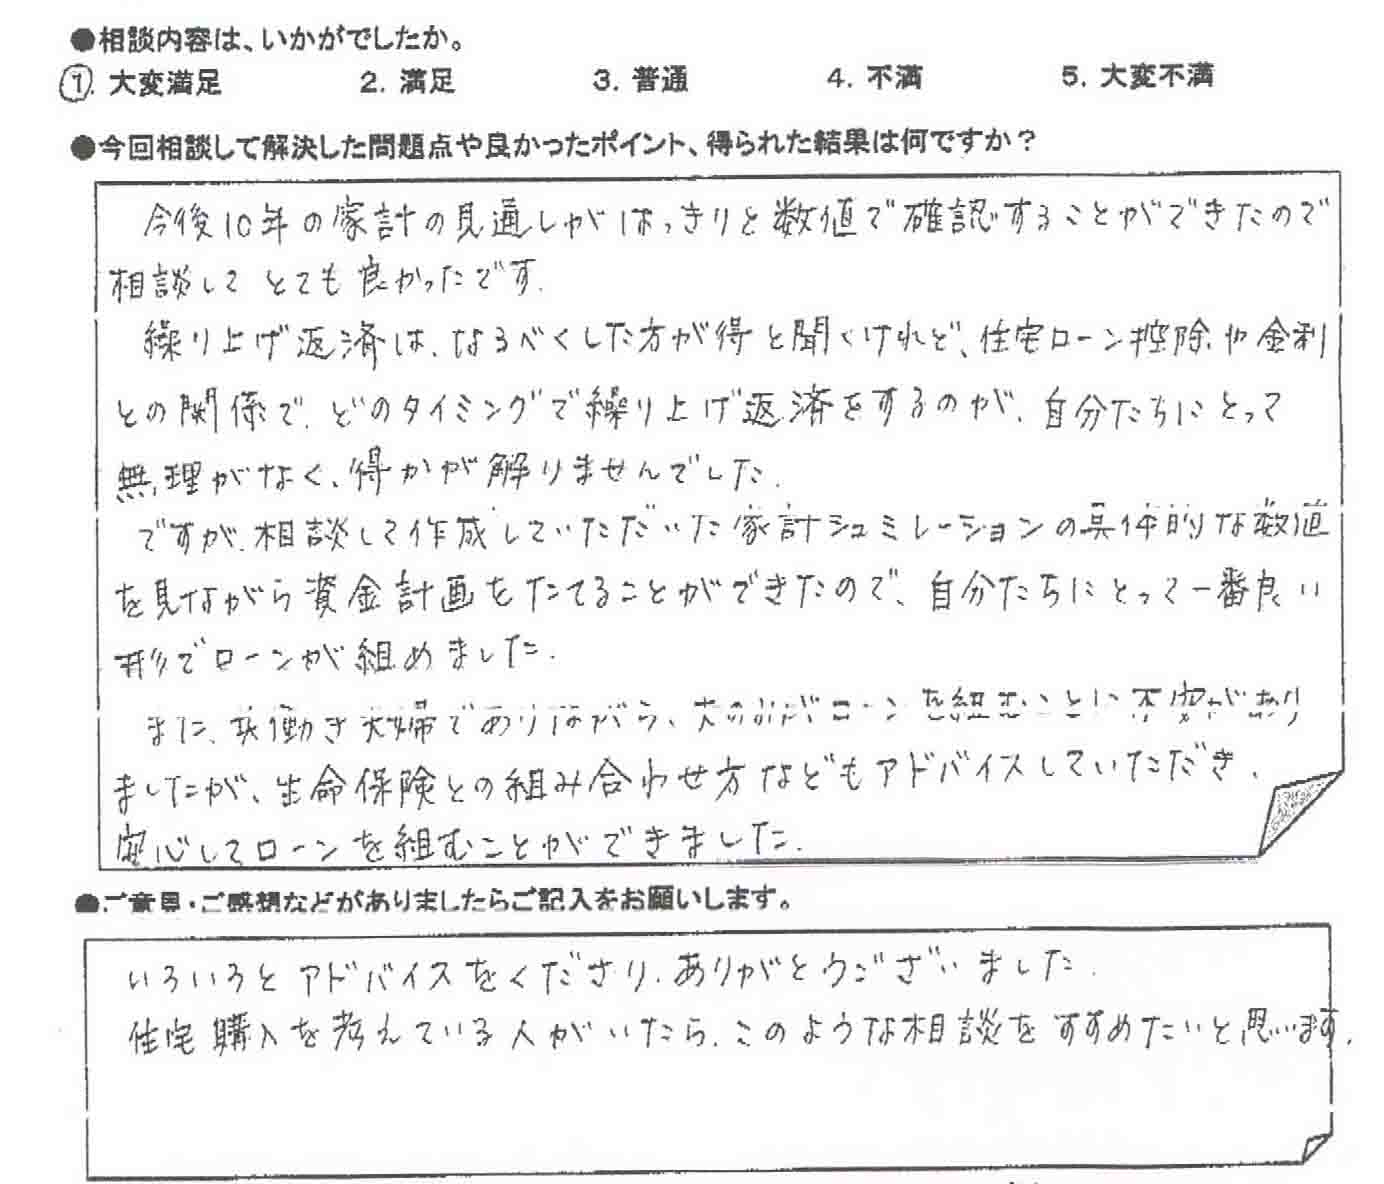 ●相談内容は、いかがでしたか。
①. 大変満足 2. 満足 3. 普通 4. 不満 5. 大変不満
●今回相談して解決した問題点や良かったポイント、得られた結果は何ですか？
今後10年の家計の見通しがはっきりと数値で確認することができたので
相談して とても良かったです.
繰り上げ返済は、なるべくした方が得と聞くけれど、住宅ローン控除や金利
との関係で、どのタイミングで繰り上げ返済をするのが、自分たちにとって
無理がなく、得かが解りませんでした.
ですが、相談して作成していただいた家計シュミレーションの具体的な数値
を見ながら資金計画をたてることができたので、自分たちにとって一番良い
形でローンが組めました.
また、共働き夫婦でありながら、夫のみがローンを組むことに不安があり
ましたが、生命保険との組み合わせ方などもアドバイスしていただき、
安心してローンを組むことができました.
●ご意見・ご感想などがありましたらご記入をお願いします。
いろいろとアドバイスをくださり、ありがとうございました.
住宅購入を考えている人がいたら、このような相談をすすめたいと思います.